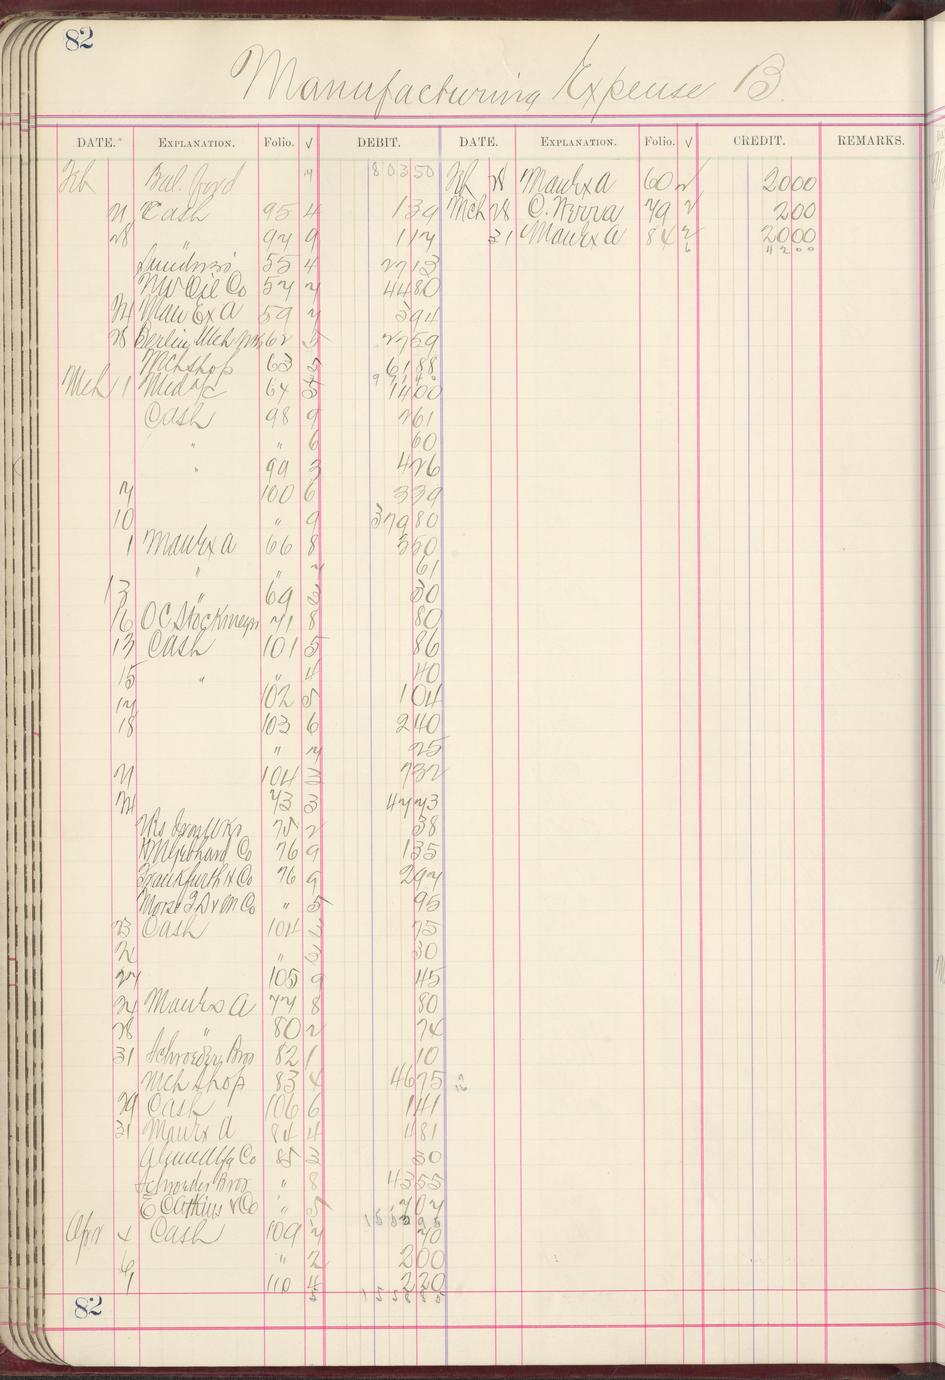 82
Manufacturing Expense B.
DATE. EXPLANATION. Folio. √ DEBIT. DATE. EXPLANATION. Folio. √ CREDIT. REMARKS.
Feb Bal. Ford 803 50 Feb 28 Manf Ex a 60 20 00
21 Cash 95 4 1 39 Mch 28 79 2 00
28 " 97 9 1 17 31 Manf Ex a 84 20 00
55 4 27 13 42 00
Oil Co 57 7 44 80
24 Manf Ex a 59 7 3 94
28 Berlin Mch 62 5 27 59
Mch shop 63 61 88
Mch 1 64 14 00
Cash 98 9 2 61
" 6 60
" 99 3 4 26
7 100 6 3 39
10 " 9 379 80
1 Manf Ex a 66 8 3 50
" " 7 61
13 " 69 3 30
16 O C Stockmeyer 71 8 80
13 Cash 101 5 86
15 " " 4 40
17 102 5 1 04
18 103 6 2 40
" 7 25
21 104 3 7 32
24 73 3 47 73
75 2 38
Gebhard Co 76 9 1 35
Frankfurth H Co 76 9 2 97
Morse & Co " 5 95
23 Cash 104 3 75
" 3 30
27 105 9 45
24 Manf Ex a 77 8 80
28 " 80 2 74
31 Schroeder Bros 82 1 10
Mch shop 83 4 46 75
29 Cash 106 6 1 41
31 Manf Ex a 84 4 4 81
Mfg Co 85 3 30
Schroeder Bros " 8 43 55
E C Atkins & Co " 5 7 07
Apr 4 Cash 109 7 70
6 " 2 2 00
7 110 4 2 20
82